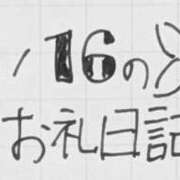 16の
お礼日記